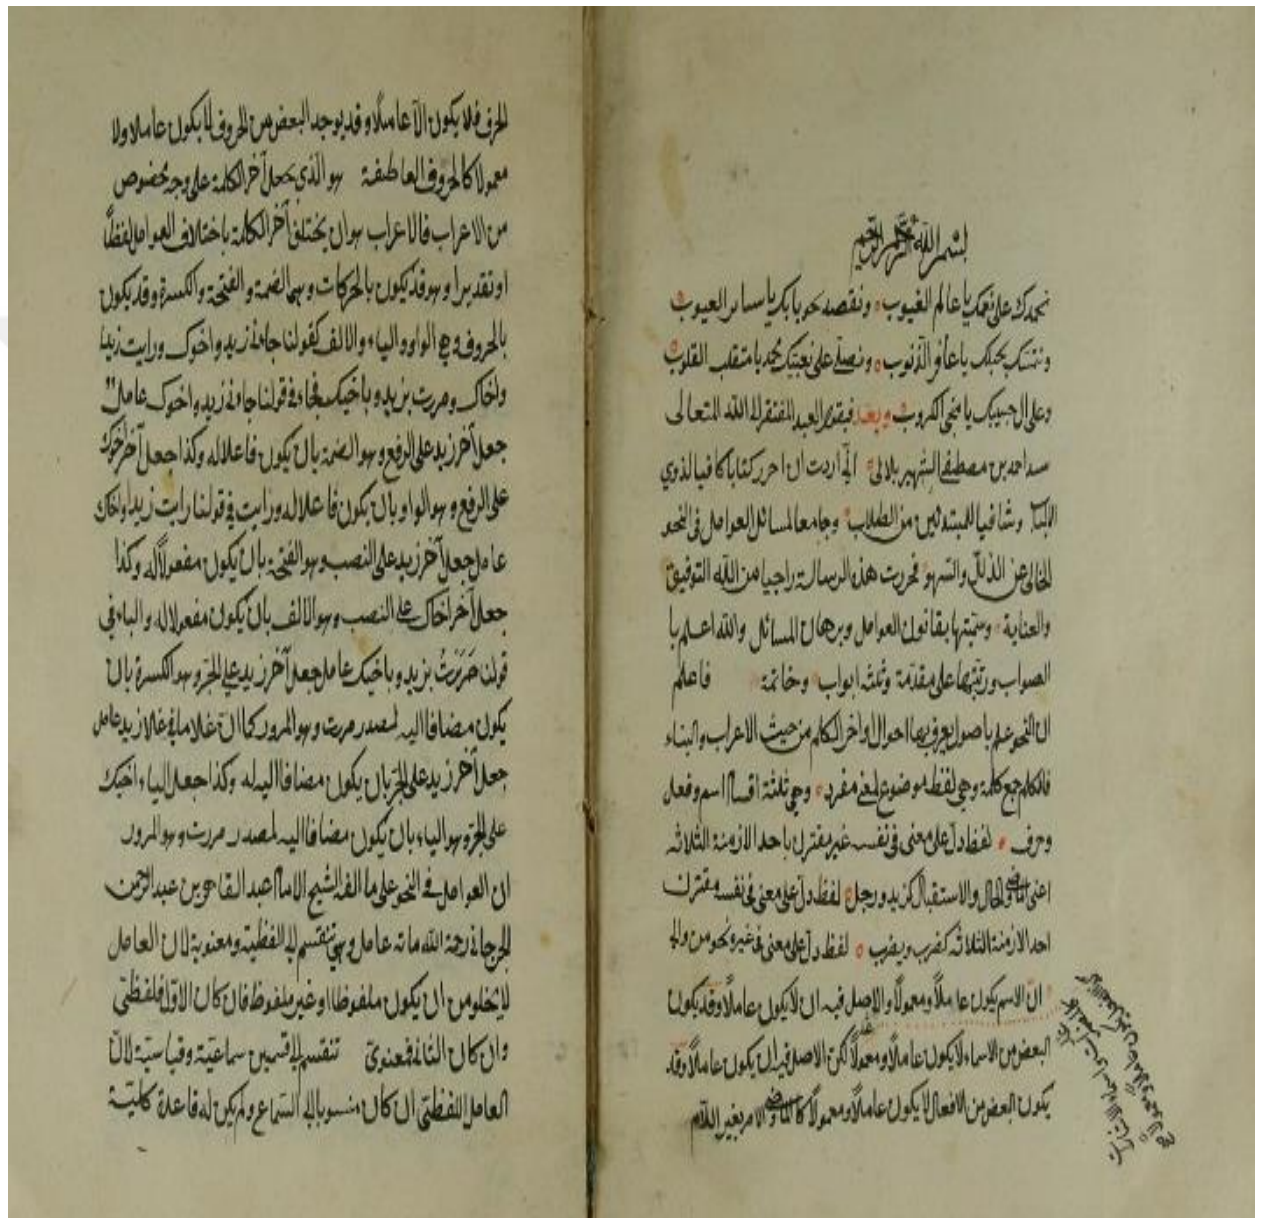 بسم الله الرحمن الرحيم
نحمدك على نعمك يا عالم الغيوب ونقصد نحو بابك يا ساتر العيوب
ونتمسك بحبلك يا غافر الذنوب ونصلي على نبيك محمد يا متقلب القلوب
وعلى ال حبيبك يا منجي الكروب وبعد فيقول العبد المفتقر الى الله المتعالى
سيد احمد بن مصطفى الشهير بلالى اني اردت ان احرر كتابا كافيا لذوي
الالباب وشافيا للمبتدئين من الطلاب وجامعا لمسائل العوامل في النحو
الخالى عن الذلل والسهو فحررت هذه الرسالة راجيا من الله التوفيق
والعناية وسميتها بقانون العوامل وبرهان المسائل والله اعلم با
الصواب ورتبتها على مقدمة وثلثه ابواب وخاتمة فاعلم
ان النحو علم باصول يعرف بها احوال اواخر الكلم من حيث الاعراب والبناء
فالكلم جمع كلمة وهي لفظ موضوع لمعنى مفرد وهي ثلثة اقسام اسم وفعل
وحرف لفظ دل على معنى في نفسه غير مقترن باحد الازمنة الثلاثه
اعنى الماضي والحال والاستقبال كزيد ورجل لفظ دل على معنى في نفسه مقترن
احد الازمنة الثلاثه كضرب ويضرب لفظ دل على معنى في غيره نحو من والى
ان الاسم يكون عاملا ومعمولا والاصل فيه ان لا يكون عاملا وقد يكون
البعض من الاسماء لا يكون عاملا ومعمولا لكن الاصل فيه ان يكون عاملا وقد
يكون البعض من الافعال لا يكون عاملا ومعمولا كالماضي والامر بغير اللام
الحرف فلا يكون الا عاملا وقد يوجد البعض من الحروف لا يكون عاملا ولا
معمولا كالحروف العاطفة هو الذي يجعل آخر الكلمة على وجه مخصوص
من الاعراب فالاعراب هو ان يختلف آخر الكلمة باختلاف العوامل لفظا
او تقديرا وهو قد يكون بالحركات وهي الضمة والفتحة والكسرة وقد يكون
بالحروف وهي الواو والياء والالف كقولنا جاءني زيد واخوك ورايت زيدا
واخاك ومررت بزيد وباخيك فجاء في قولنا جاءني زيد واخوك عامل
جعل آخر زيد على الرفع وهو الضمة بان يكون فاعلا له وكذا جعل آخر اخوك
على الرفع وهو الواو بان يكون فاعلا له ورايت في قولنا رايت زيدا واخاك
عامل جعل آخر زيد على النصب وهو الفتحة بان يكون مفعولا له وكذا
جعل آخر اخاك على النصب وهو الالف بان يكون مفعولا له والباء في
قولنا مررت بزيد وباخيك عامل جعل آخر زيد على الجر وهو الكسرة بان
يكون مضافا اليه لمصدر مررت وهو المرور كما ان غلاما في غلام زيد عامل
جعل آخر زيد على الجر بان يكون مضافا اليه له وكذا جعل الياء اخيك
على الجر وهو الياء بان يكون مضافا اليه لمصدر مررت وهو المرور
ان العوامل في النحو على ما الفه الشيخ الامام عبد القاهر بن عبد الرحمن
الجرجاني رحمة الله مائة عامل وهي تنقسم الى لفظية ومعنوية لان العامل
لا يخلو من ان يكون ملفوظا او غير ملفوظ فان كان الاول فلفظى
وان كان الثاني فمعنوى تنقسم الى قسمين سماعية وقياسية لان
العامل اللفظى ان كان منسوبا الى السماع ولم يكن له قاعدة كلية